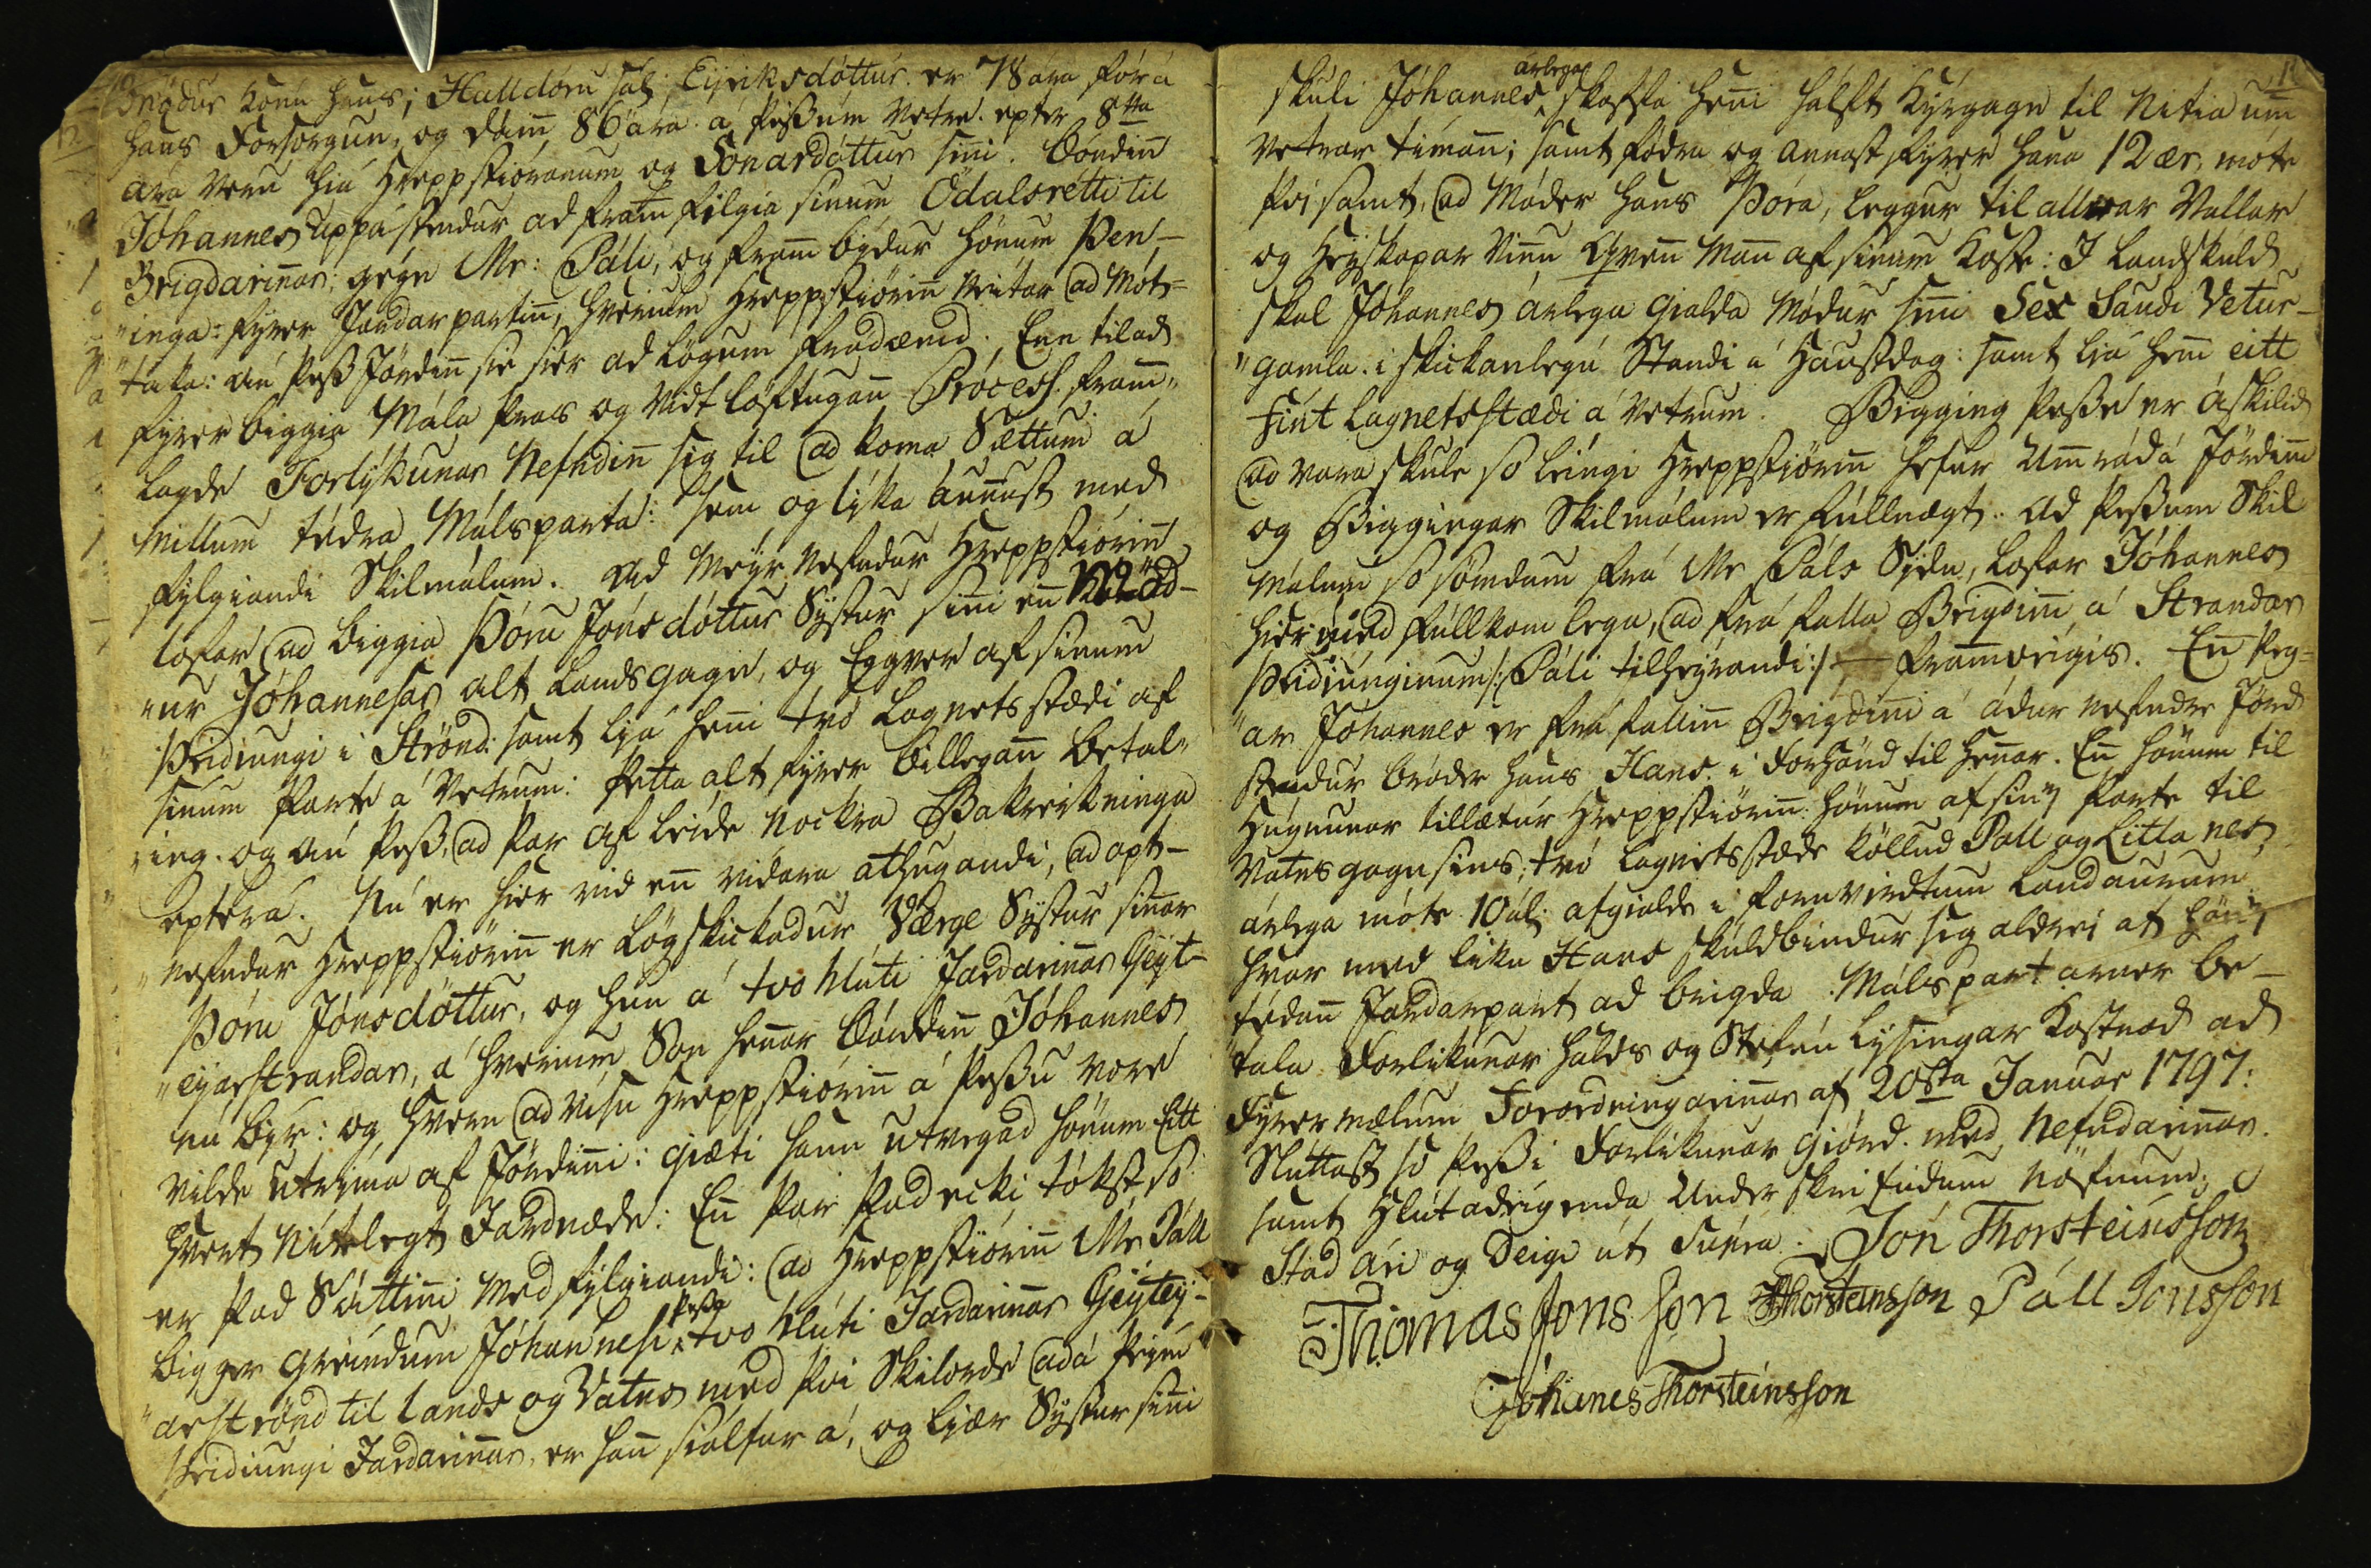 Modur Konu hans; Halldóru sal. Eyriksdóttur er 78 ara fór á
hans Forsorgun, og dáinn 86 ára á þessum Vetri epter 8tta
ara Veru hiá Hreppstióranum og Sonardóttur sinni. Bóndinn
Jóhannes uppástendur ad framfilgia sinum Ódalsrétti til
Brigdarinnar gégn Mr: Páli, og frambýdur hönum Pen-
"inga: fyrer Jardarpartinn, hverium Hreppstiórinn neitar ad Mót-
"taka: án þess Jördinn sie sier ad lögum frádæmd. Enn til ad
fyrerbiggia Mála þras og vidtlöftugann Process. fram-
lagde Forlýkunar Nefndinn sig til ad koma Sættum á
Millum tédra Málsparta: sem og lýka áunnust med
fylgiandi Skilmálum. Ad Meyrnefndur Hreppstiórinn
lofar ad biggia Þóru Jónsdóttur Systur sinni enn Mód-
"ur Jóhannesar alt Landsgagn, og Eggver af sinum
Þridiungi i Strönd: samt liá henni tvö Lagnetsstædi af
sinum Parte á Vetrum: þetta alt fyrer billegann Betal-
"ing. og án þess, ad þar af leide nockra Bakreikninga
epterá. Nú er hier vid enn vidara athugandi, ad opt-
"nefndur Hreppstiórinn er Lögskickadur Værge Systur sinnar
Þóru Jónsdóttur, og hun á tvo hluti Jardarinnar Geyt-
"eyarstrandar, á hverium Son hennar Bóndinn Jóhannes
nú býr: og hvern ad visu Hreppstiórinn á þessu vore
vilde utrýma af Jördinni: giæti hann utvegad hönum Eitt
hvert Nitelegt Jardnæde: Enn þar þad ecki tókst, so
er þad Sáttinni Medfylgiandi: ad Hreppstiórinn Mr. Páll
bigger greindum Jóhannesi þessa tvo hluti Jardarinnar Geytey-
"arströnd til lands og Vatns med þvi Skilorde ad á þeim
Þridiungi Jardarinnar, er hann siálfur á, og liær Systur sinni
skuli Jóhannes árlega skaffa henni hálft Kýrgagn til Nitia um
Vetrar timann; samt fódra og annast fyrer hana 12 ær, móte
þvi samt, ad Móder hans Þóra, leggur til allrar Vallar
og Heyskapar Vinnu Einn Mann af sinum Koste: I Landskuld
skal Jóhannes árlega gialda Módur sinni Sex Saudi Vetur-
"gamla i skickanlegu Standi á Haustdag: samt liá henni eitt
fint Lagnetsstædi á Vetrum. Bigging þesse er áskilid
ad vara skule so leingi Hreppstiórinn hefur Umrád á Jördinni
og Biggingar Skilmálum er fullnægt. Ad þessum Skil
málum so sömdum frá Mr Páls Sýdu, lofar Jóhannes
hier med fullkomlega, ad frá falla Brigdinni á Strandar
Þridiunginum /: Páli tilheyrandi :/ framveigis. Enn þeg-
"ar Jóhannes er frá fallinn Brigdinni á ádur nefndre Jörd
stendur Bróder hans Hans i Forhönd til hennar. Enn hönum til
Hugnunar tillætur Hreppstiórinn hönum af sinu Parte til
Vatnsgagnsins; tvö Lagnetsstæde köllud Poll og Litla nes
árlega móte 10 ál: afgialde i fornvirdtum Landaurum
hvar med lika Hans skuldbindur sig aldrei af hön
tédann Jardarpart ad brigda. Málspartarner be-
"tala Forlikunar halds og Stefnu Lysingar Kostnad ad
Fyrermælum Forordningarinnar af 20sta Januar 1797:
Sluttast so þessi Forlikunar Giörd. med Nefndarinnar
samt Hlutadeigenda Under skrifudum Nöfnum,
Stad Ari og Deigi út Supra. Jón Thorsteinsson
Thomas Jons son Thorsteinsson Páll Jónsson
Jóhanes Thorsteinsson